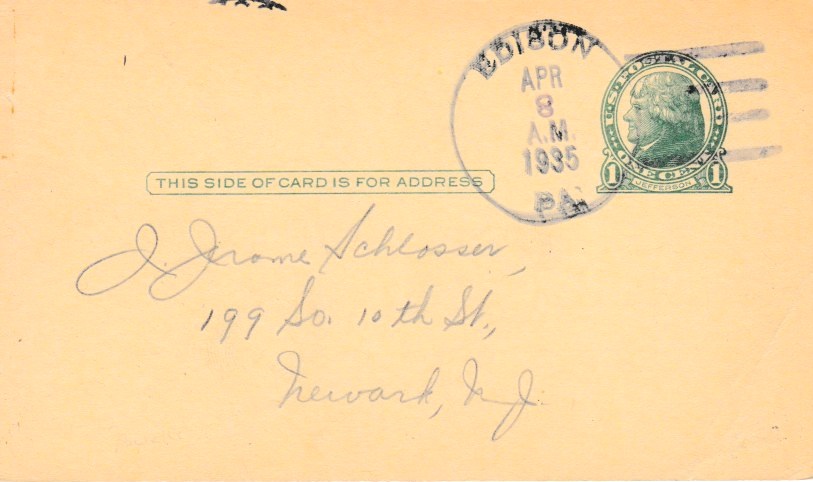 EDISON
APR
8
A.M.
1935
PA.
U.S. POSTAL CARD
ONE CENT
1 JEFFERSON 1
THIS SIDE OF CARD IS FOR ADDRESS
J. Jerome Schlosser,
199 So. 10th St.,
Newark, N.J.